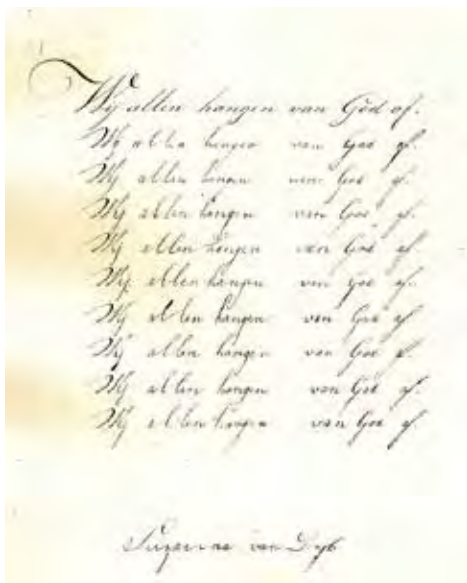 Wij allen hangen van God af.
Wij allen hangen van God af.
Wij allen hangen van God af.
Wij allen hangen van God af.
Wij allen hangen van God af.
Wij allen hangen van God af.
Wij allen hangen van God af.
Wij allen hangen van God af.
Wij allen hangen van God af.
Wij allen hangen van God af.
van Dyk